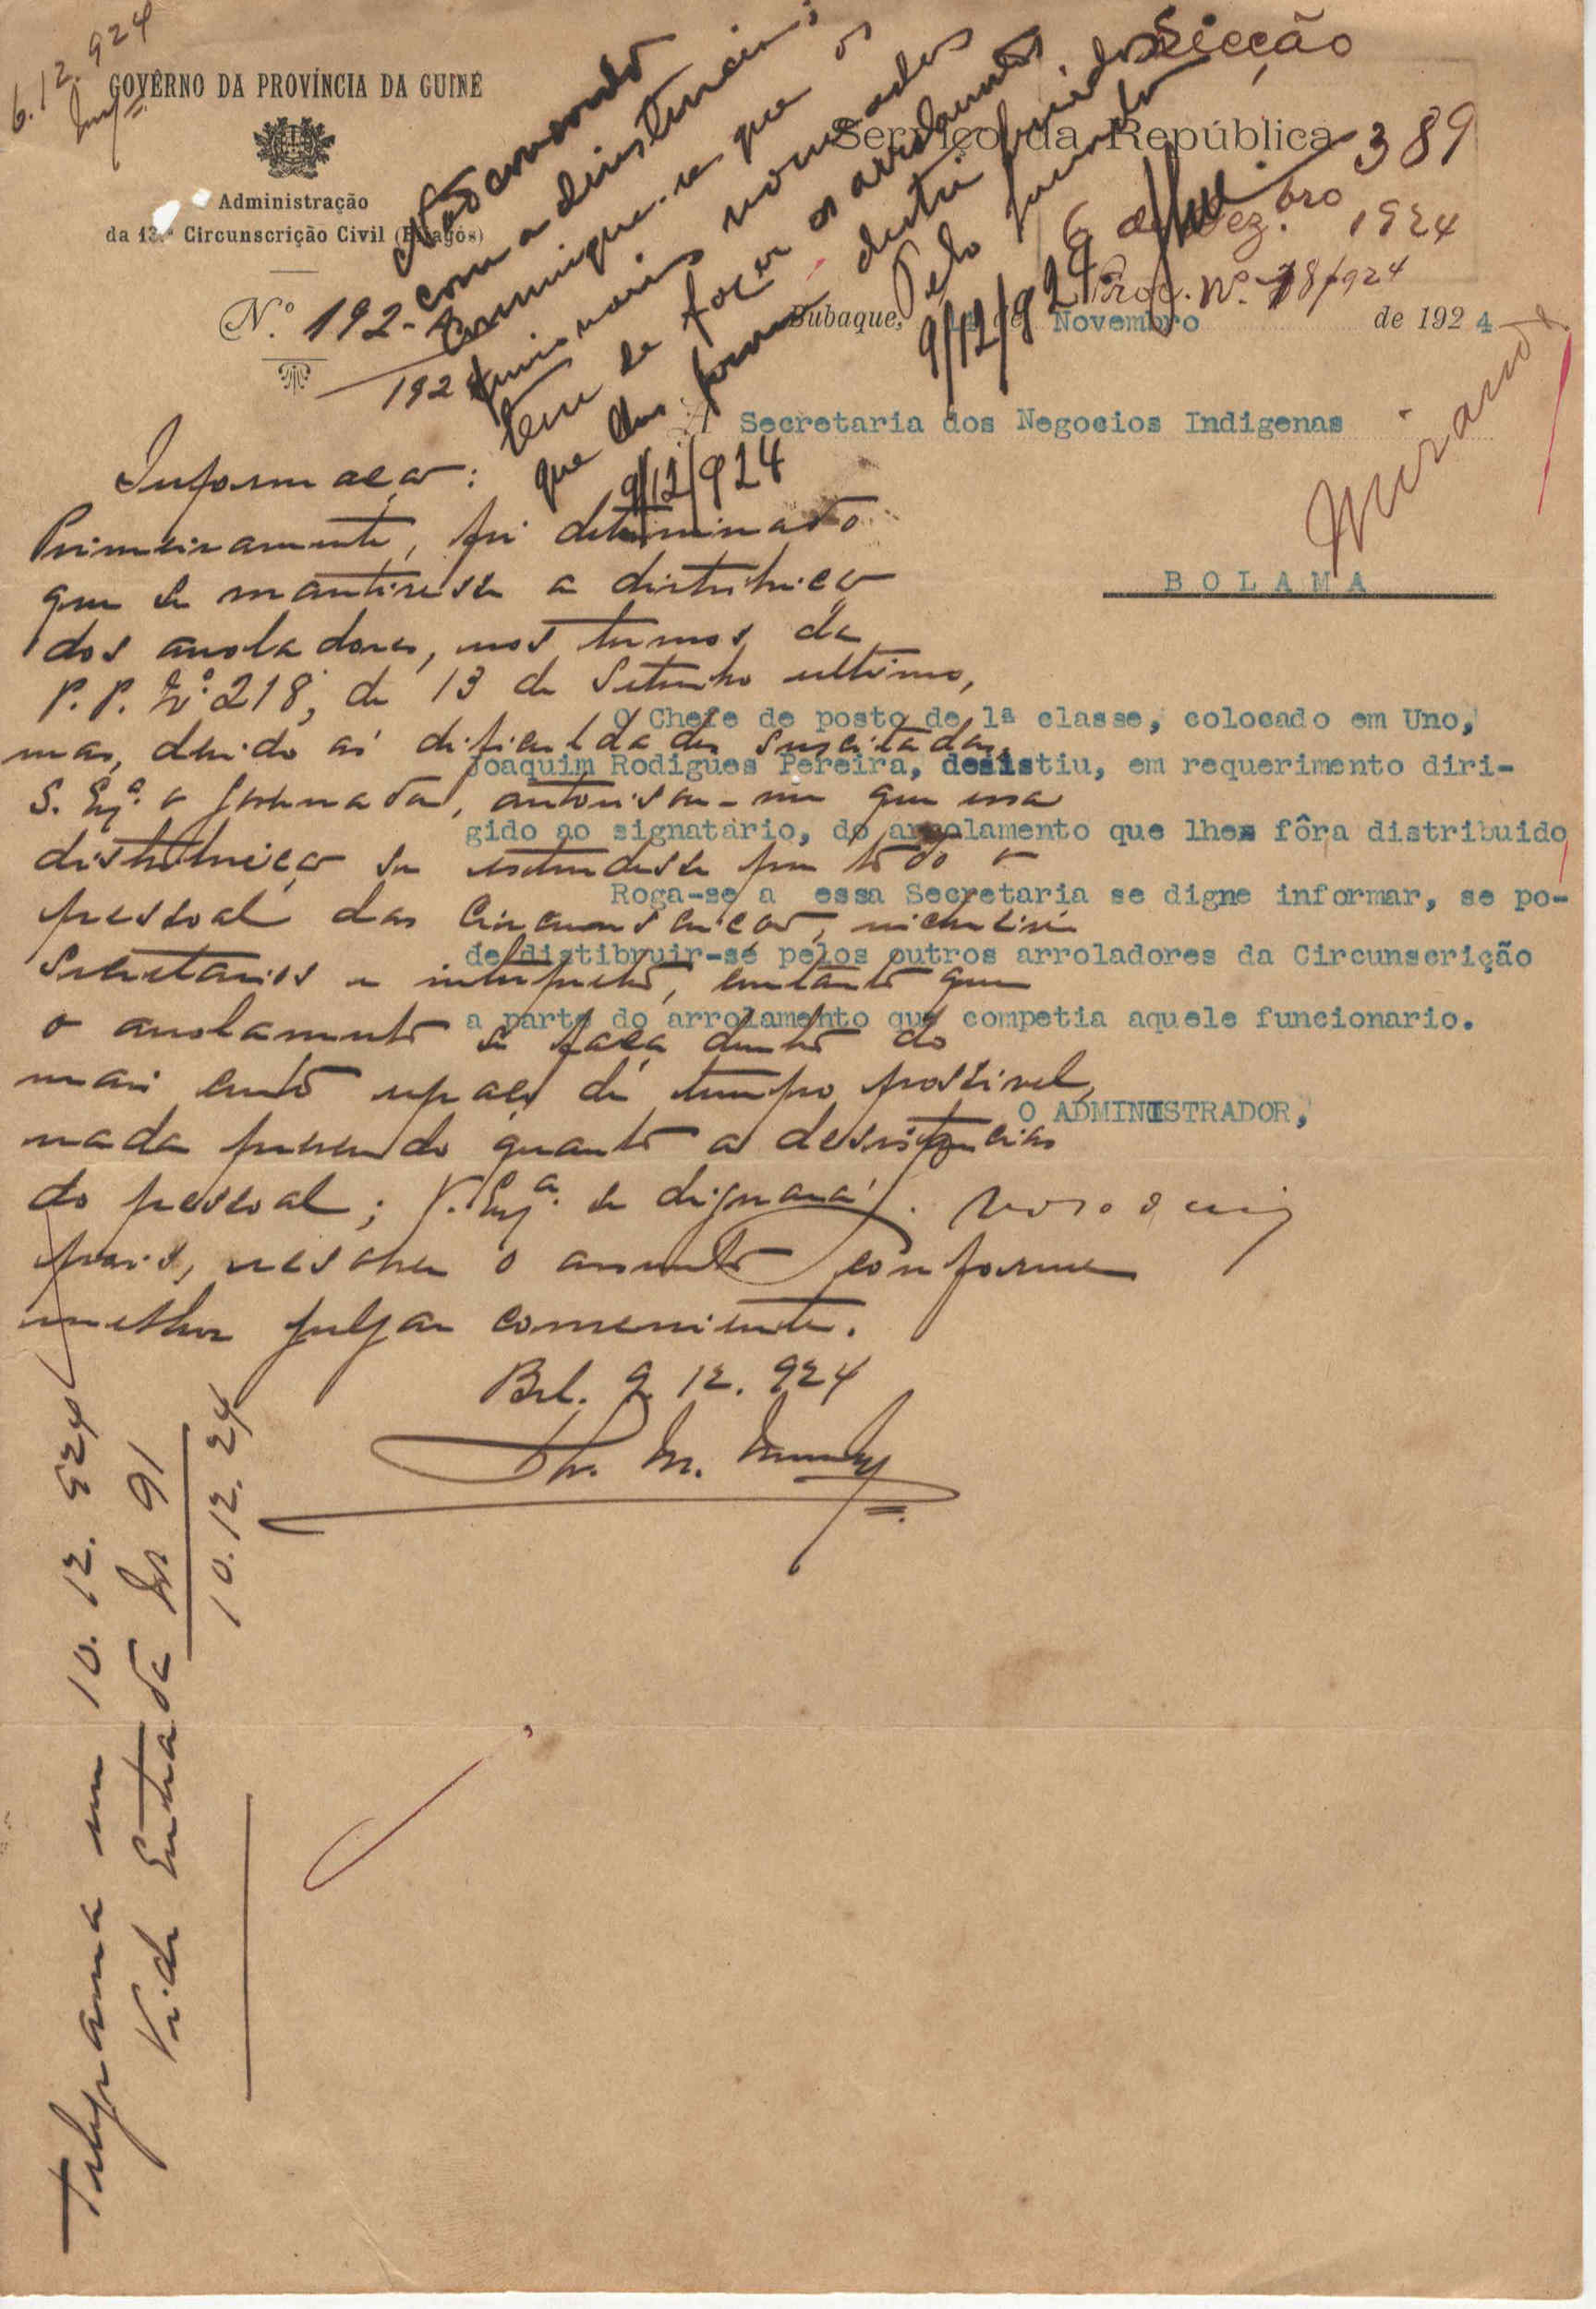 6.12.924
GOVÊRNO DA PROVÍNCIA DA GUINÉ
Administração
da 13.ª Circunscrição Civil (Bijagós)
N.º 192-
1924
Secção
Serviço da República
389
6 de Dez.bro 1924
Proc. Nº. 78/924
Bubaque, de Novembro de 1924
Não concordo
com a desistencia;
Comunique-se que os
funcionarios nomeados
teem de fazer os arrolamentos
que lhes foram distribuidos
9/12/924
Pelo Governador
9/12/924
Miranda
A Secretaria dos Negocios Indigenas
BOLAMA
O Chefe de posto de 1ª classe, colocado em Uno,
Joaquim Rodigues Pereira, desistiu, em requerimento diri-
gido ao signatário, do arrolamento que lhes fôra distribuido
Roga-se a essa Secretaria se digne informar, se po-
de distibruir-se pelos outros arroladores da Circunscrição
a parte do arrolamento que competia aquele funcionario.
O ADMINISTRADOR,
Informação:
Primeiramente, foi determinado
que se mantivesse a distribuição
dos arroladores, nos termos da
P. P. Nº 218, de 13 de Setembro ultimo,
mas, devido ás dificuldades suscitadas,
S. Exª. o Governador, autorisou-me que essa
distribuição se estendesse por todo o
pessoal das Circunscrições, inclusivé
Secretarios e interpretes, comtanto que
o arrolamento se faça dentro do
mais curto espaço de tempo possivel,
nada prevendo quanto a desistencias
do pessoal; V. Exª. se dignará,
pois, resolver o assunto conforme
melhor julgar conveniente.
Bol. 9.12.924
Telegrama em 10.12.924
Vide Entrada Nº 91
10.12.24